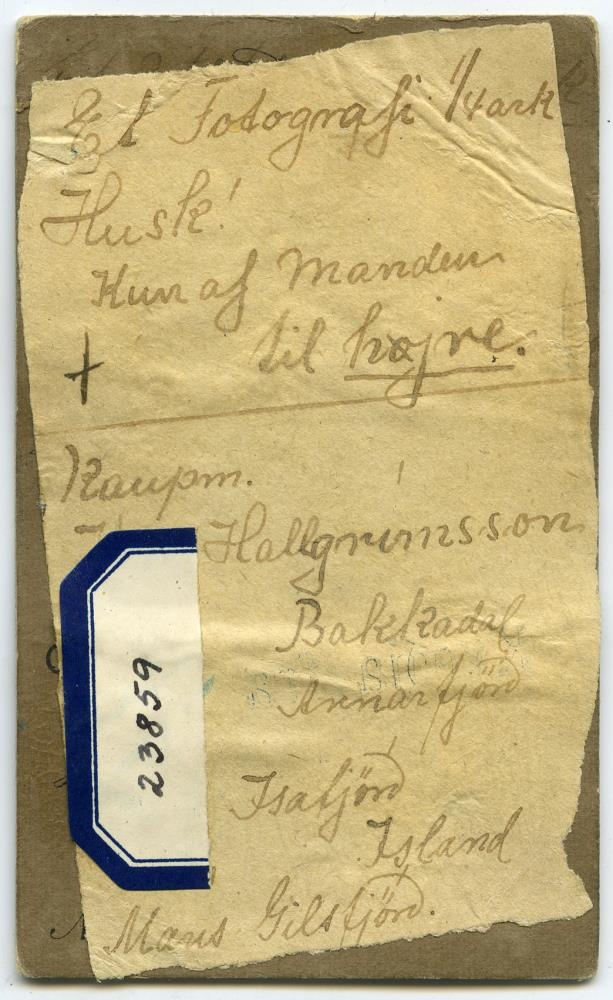 Et Fotografi 1/4 ark
Husk!
Kun af Manden
til højre.
Kaupm.
Hallgrimsson
Bakkadal
Arnarfjörd
Isafjörd
Island
Gilsfjörd.
23859